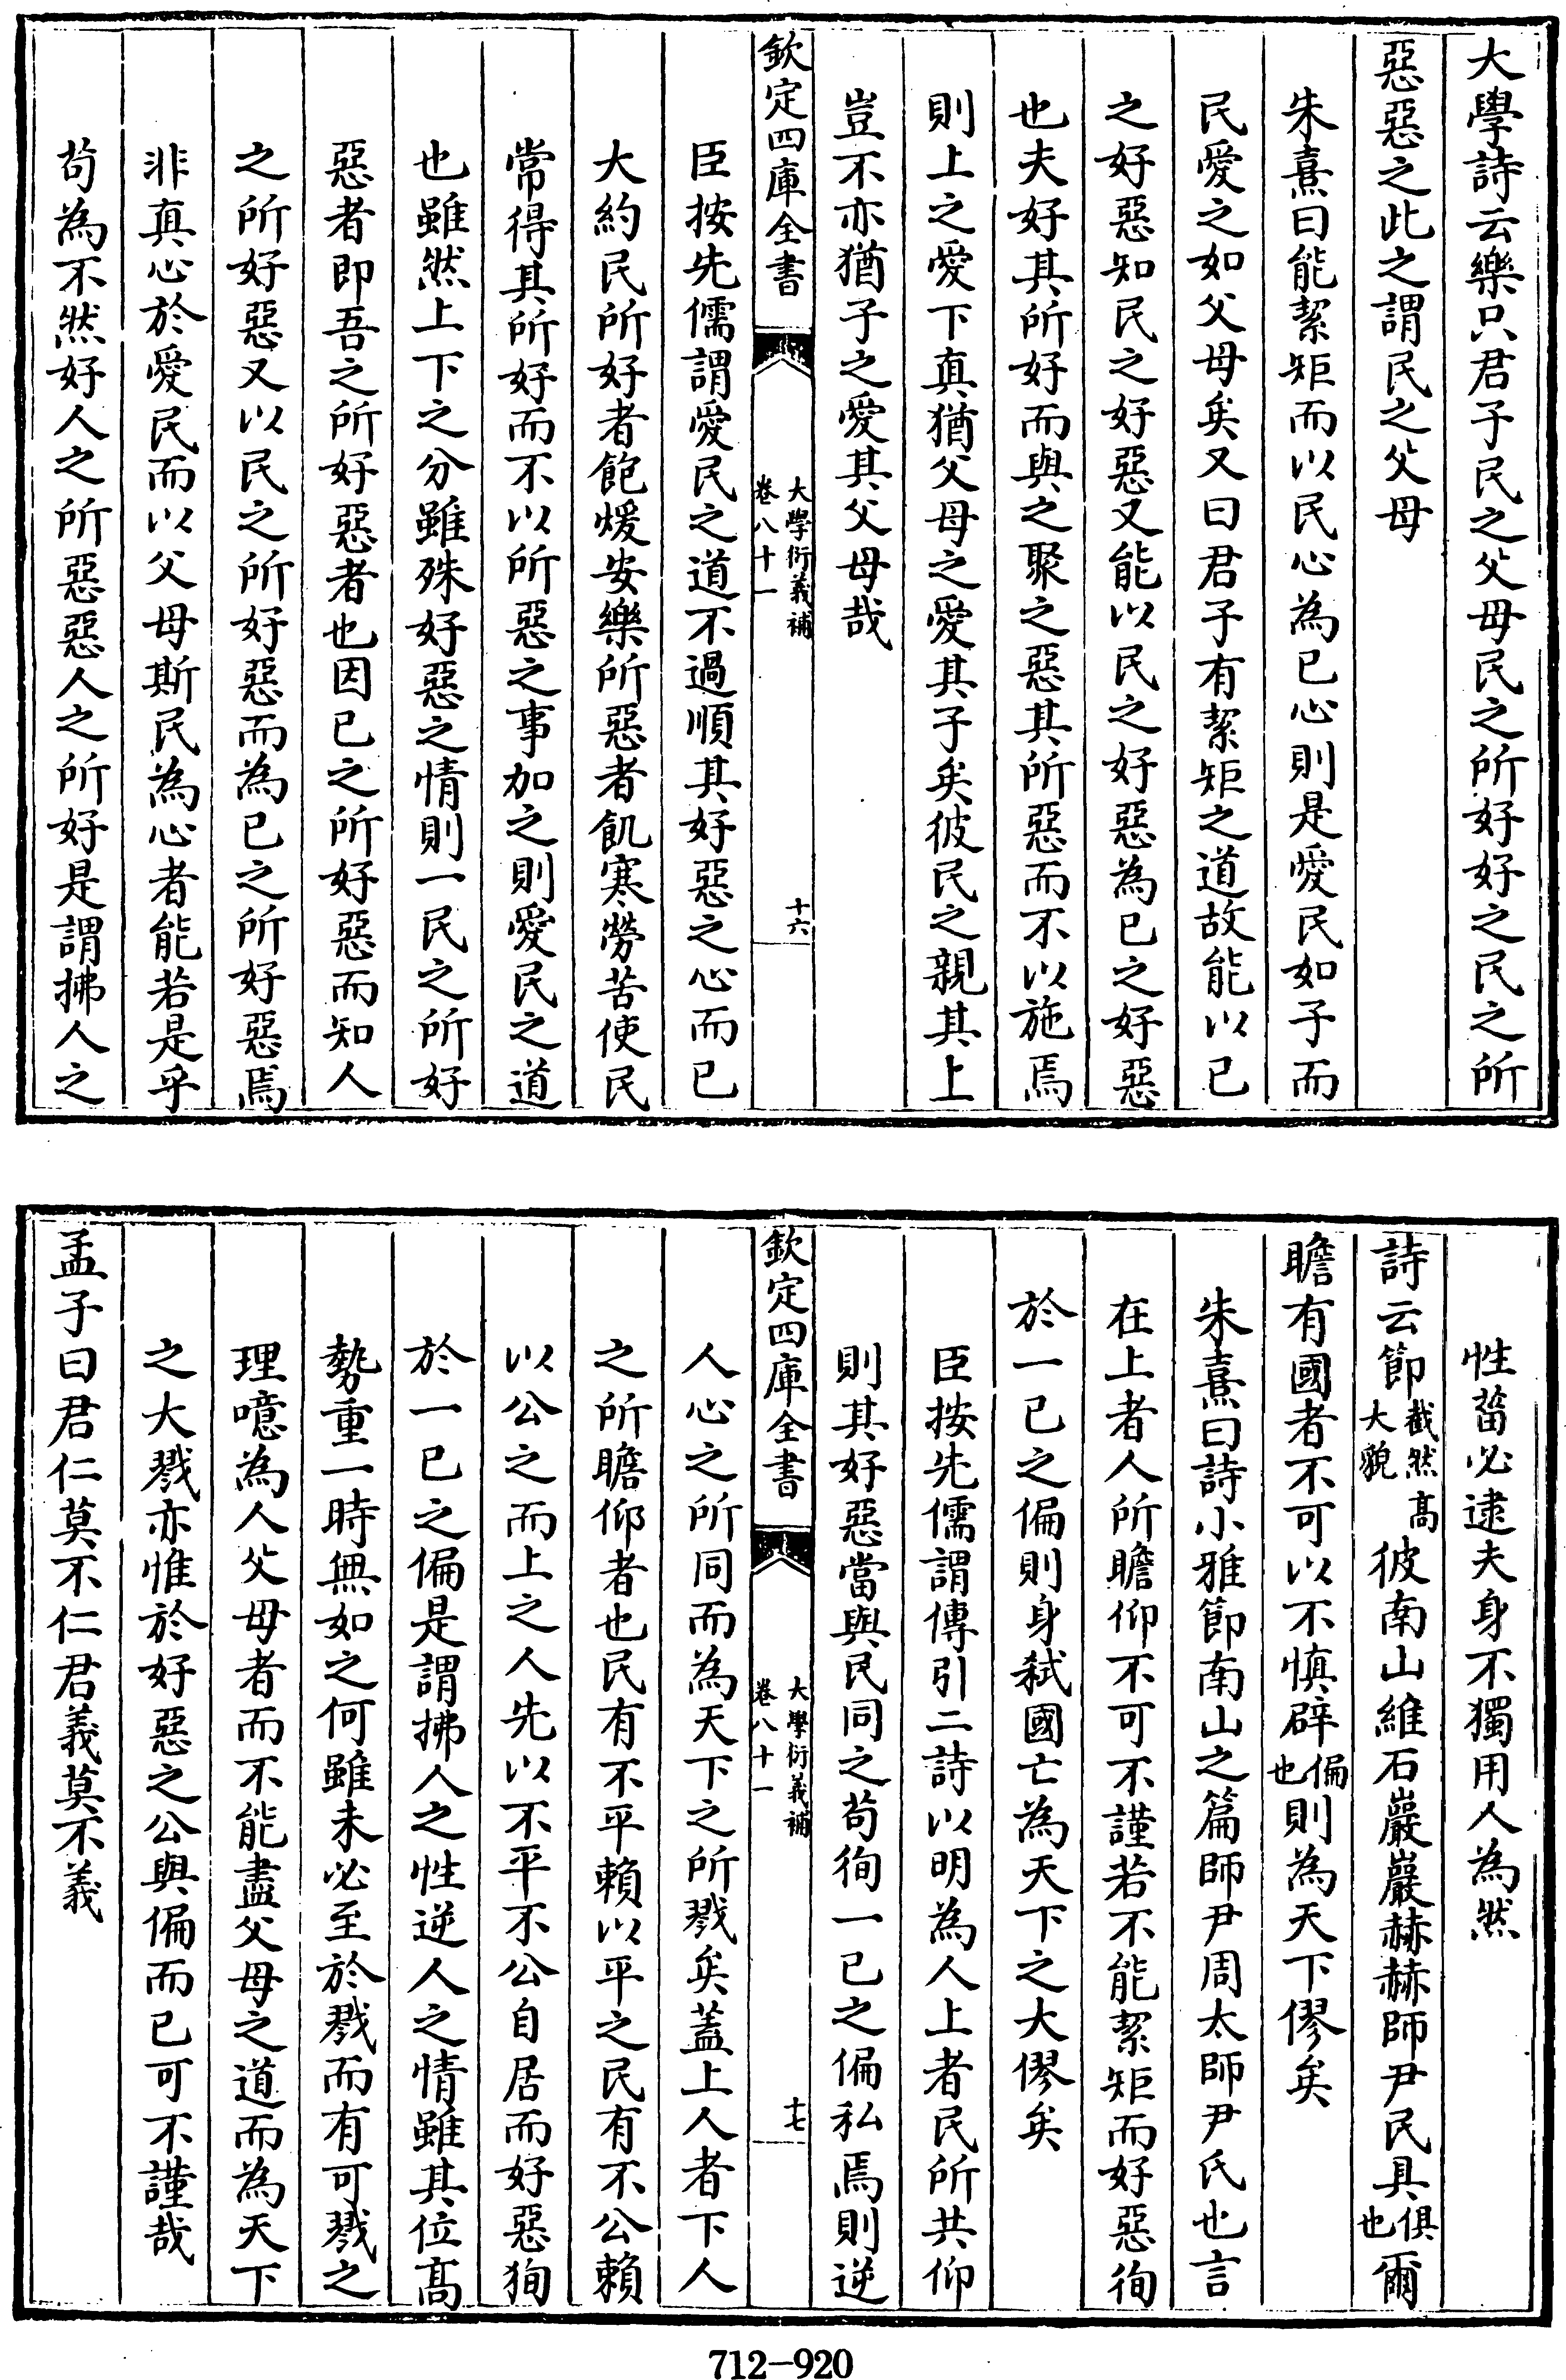 大學詩云樂只君子民之父母民之所好好之民之所
惡惡之此之謂民之父母
朱熹曰能絜矩而以民心為已心則是愛民如子而
民愛之如父母矣又曰君子有絜矩之道故能以已
之好惡知民之好惡又能以民之好惡為已之好惡
也夫好其所好而與之聚之惡其所惡而不以施焉
則上之愛下真猶父母之愛其子矣彼民之親其上
豈不亦猶子之愛其父母哉
欽定四庫全書
大學衍義補
卷八十一
十六
臣按先儒謂愛民之道不過順其好惡之心而已
大約民所好者飽煖安樂所惡者飢寒勞苦使民
常得其所好而不以所惡之事加之則愛民之道
也雖然上下之分雖殊好惡之情則一民之所好
惡者即吾之所好惡者也因已之所好惡而知人
之所好惡又以民之所好惡而為已之所好惡焉
非真心於愛民而以父母斯民為心者能若是乎
苟為不然好人之所惡惡人之所好是謂拂人之
性菑必逮夫身不獨用人為然
詩云節截然高大貌彼南山維石巖巖赫赫師尹民具俱也爾
瞻有國者不可以不慎辟偏也則為天下僇矣
朱熹曰詩小雅節南山之篇師尹周太師尹氏也言
在上者人所瞻仰不可不謹若不能絜矩而好惡徇
於一已之偏則身弒國亡為天下之大僇矣
臣按先儒謂傳引二詩以明為人上者民所共仰
則其好惡當與民同之苟徇一已之偏私焉則逆
欽定四庫全書
大學衍義補
卷八十一
十七
人心之所同而為天下之所戮矣蓋上人者下人
之所瞻仰者也民有不平賴以平之民有不公賴
以公之而上之人先以不平不公自居而好惡狥
於一已之偏是謂拂人之性逆人之情雖其位高
勢重一時無如之何雖未必至於戮而有可戮之
理噫為人父母者而不能盡父母之道而為天下
之大戮亦惟於好惡之公與偏而已可不謹哉
孟子曰君仁莫不仁君義莫不義
712-920